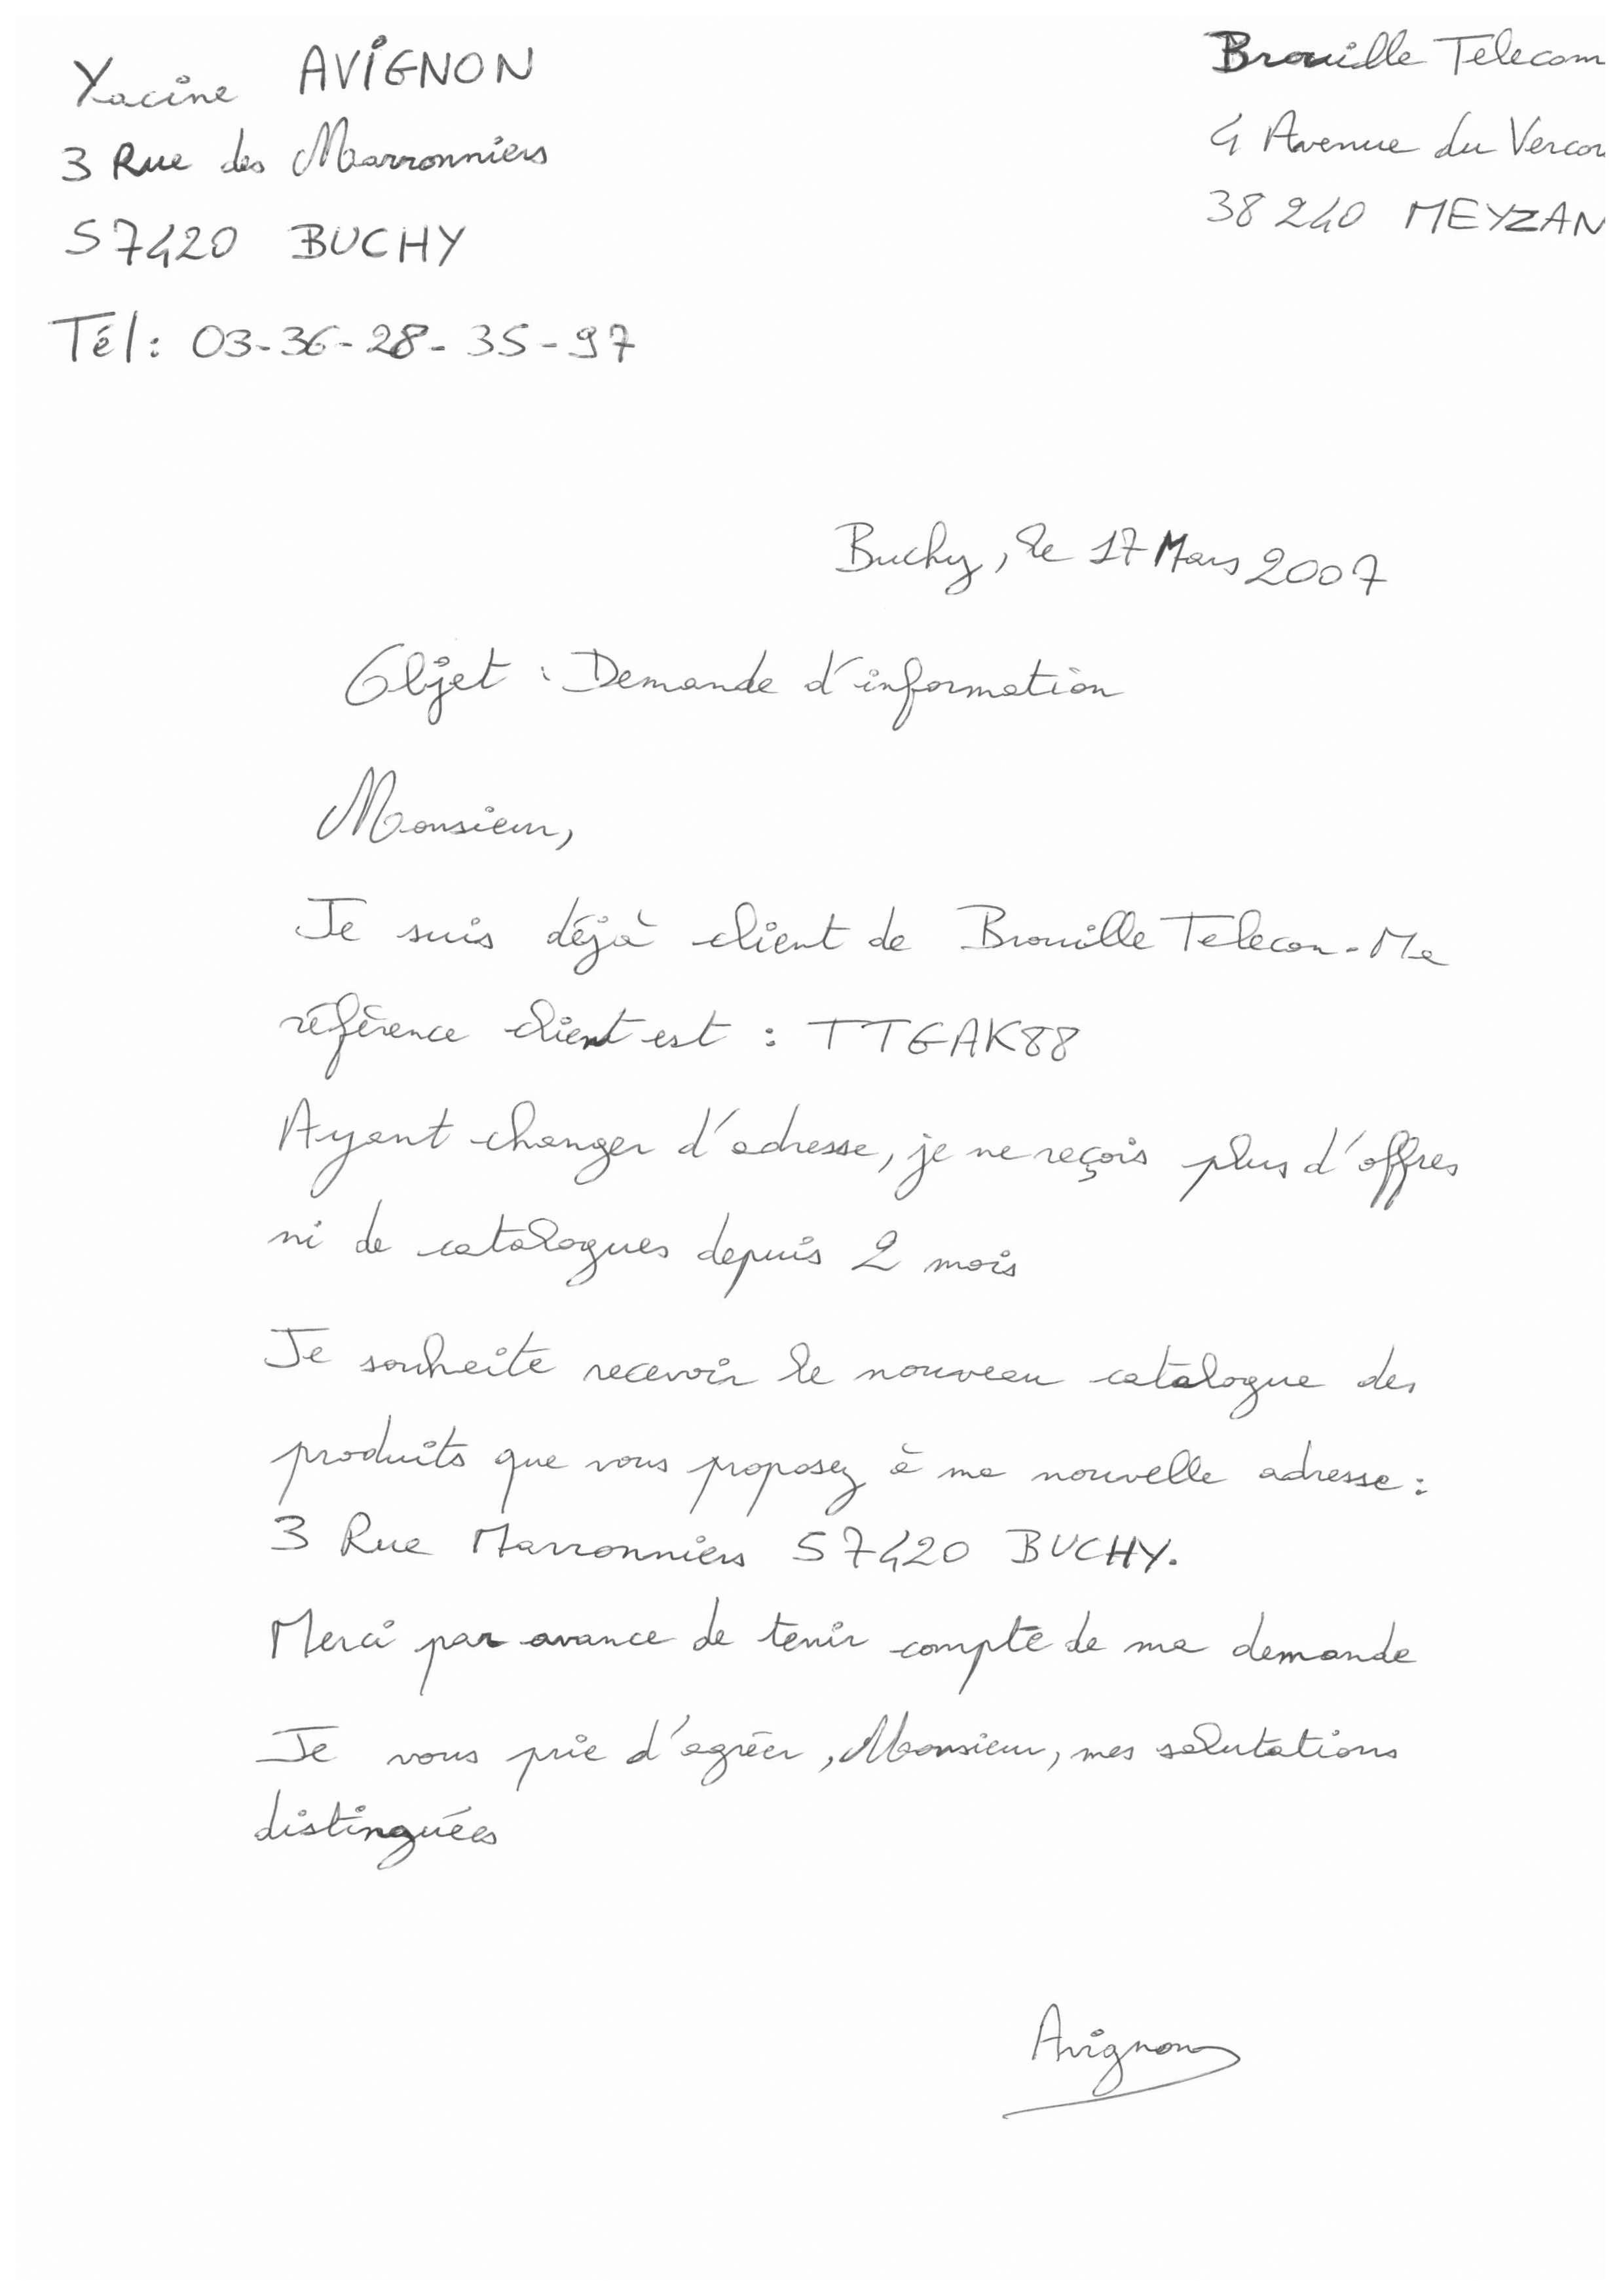 Yacine AVIGNON
3 Rue des Marronniers
57420 BUCHY
Tél: 03-36-28-35-97
Brouille Telecom
4 Avenue du Vercor
38240 MEYZAN
Buchy, le 17 Mars 2007
Objet : Demande d'information
Monsieur,
Je suis déjà client de Brouille Telecom. Ma
référence client est : TTGAK88
Ayant changer d'adresse, je ne reçois plus d'offres
ni de catalogues depuis 2 mois
Je souhaite recevoir le nouveau catalogue des
produits que vous proposez à ma nouvelle adresse :
3 Rue Marronniers 57420 BUCHY.
Merci par avance de tenir compte de ma demande
Je vous prie d'agréer, Monsieur, mes salutations
distinguées
Avignon